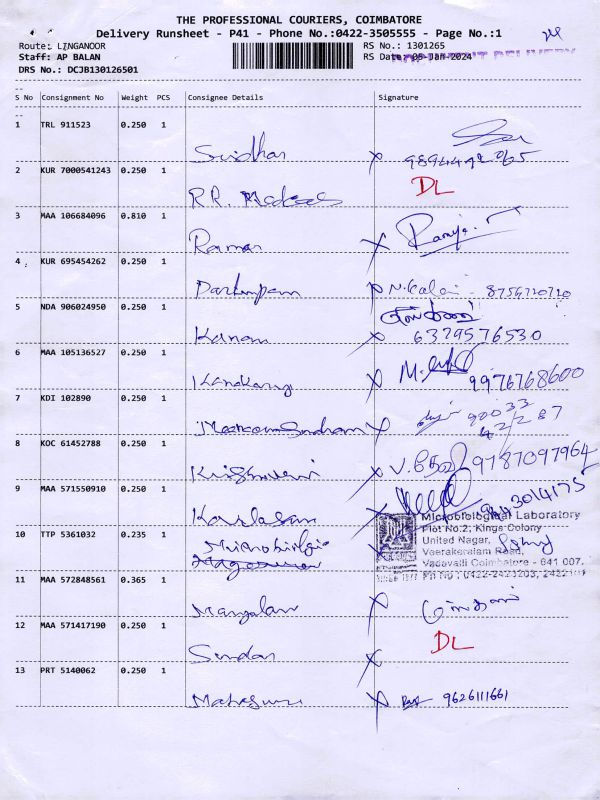 THE PROFESSIONAL COURIERS, COIMBATORE
Delivery Runsheet - P41 - Phone No.:0422-3505555 - Page No.:1
Route: LINGANOOR
RS No.: 1301265
Staff: AP BALAN
RS Date: 05-Jan-2024
DRS No.: DCJB130126501
S No Consignment No Weight PCS Consignee Details Signature
1 TRL 911523 0.250 1
Sridhar X 9894492065
2 KUR 7000541243 0.250 1 DL
R.R. Medicals
3 MAA 106684096 0.810 1
Raman X Ramya
4 KUR 695454262 0.250 1
N. Kalai
5 NDA 906024950 0.250 1
Kanam X 6379576530
6 MAA 105136527 0.250 1
X 9976768600
7 KDI 102890 0.250 1 90033
X 42287
8 KOC 61452788 0.250 1
Krishnaveni X 9787097964
9 MAA 571550910 0.250 1
Kailasam
Microbiological Laboratory
10 TTP 5361032 0.235 1 Plot No.2, Kings Colony
Microbiology X United Nagar,
Veerakeralam Road,
Vadavalli Coimbatore - 641 007.
11 MAA 572848561 0.365 1
Mangalam X
12 MAA 571417190 0.250 1 DL
Sundar X
13 PRT 5140062 0.250 1
Maheswari X 9626111661